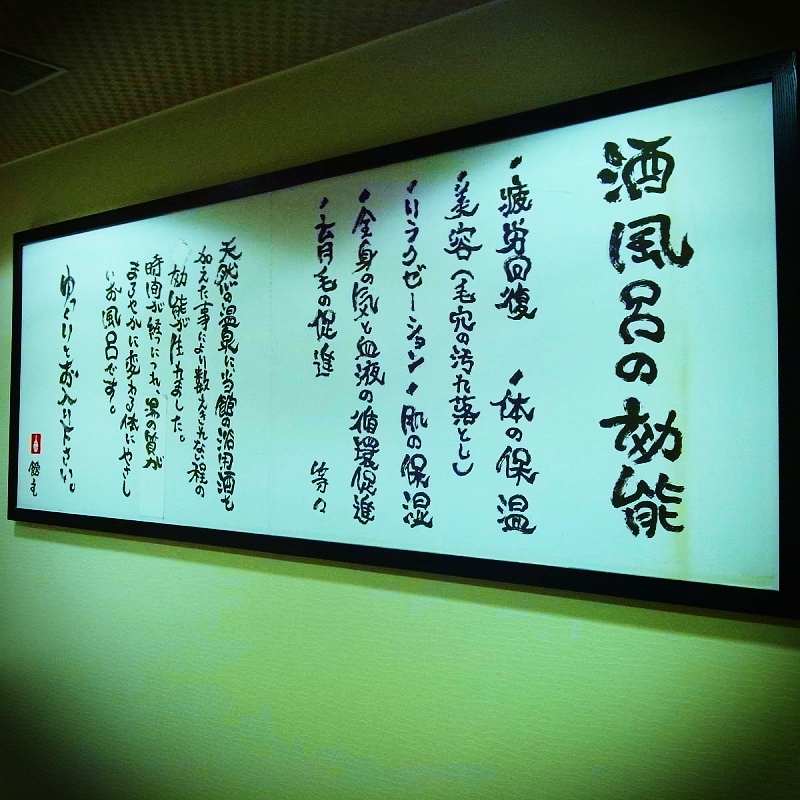 酒風呂の効能
・疲労回復 ・体の保温
・美容(毛穴の汚れ落とし)
・リラクゼーション ・肌の保湿
・全身の気と血液の循環促進
・育毛の促進 等々
天然の温泉に当館の浴用酒を
加えた事により数えきれない程の
効能が生れました。
時間が経つにつれ、湯の質が
まろやかに変わる体にやさし
いお風呂です。
ゆっくりとお入り下さい。
館主